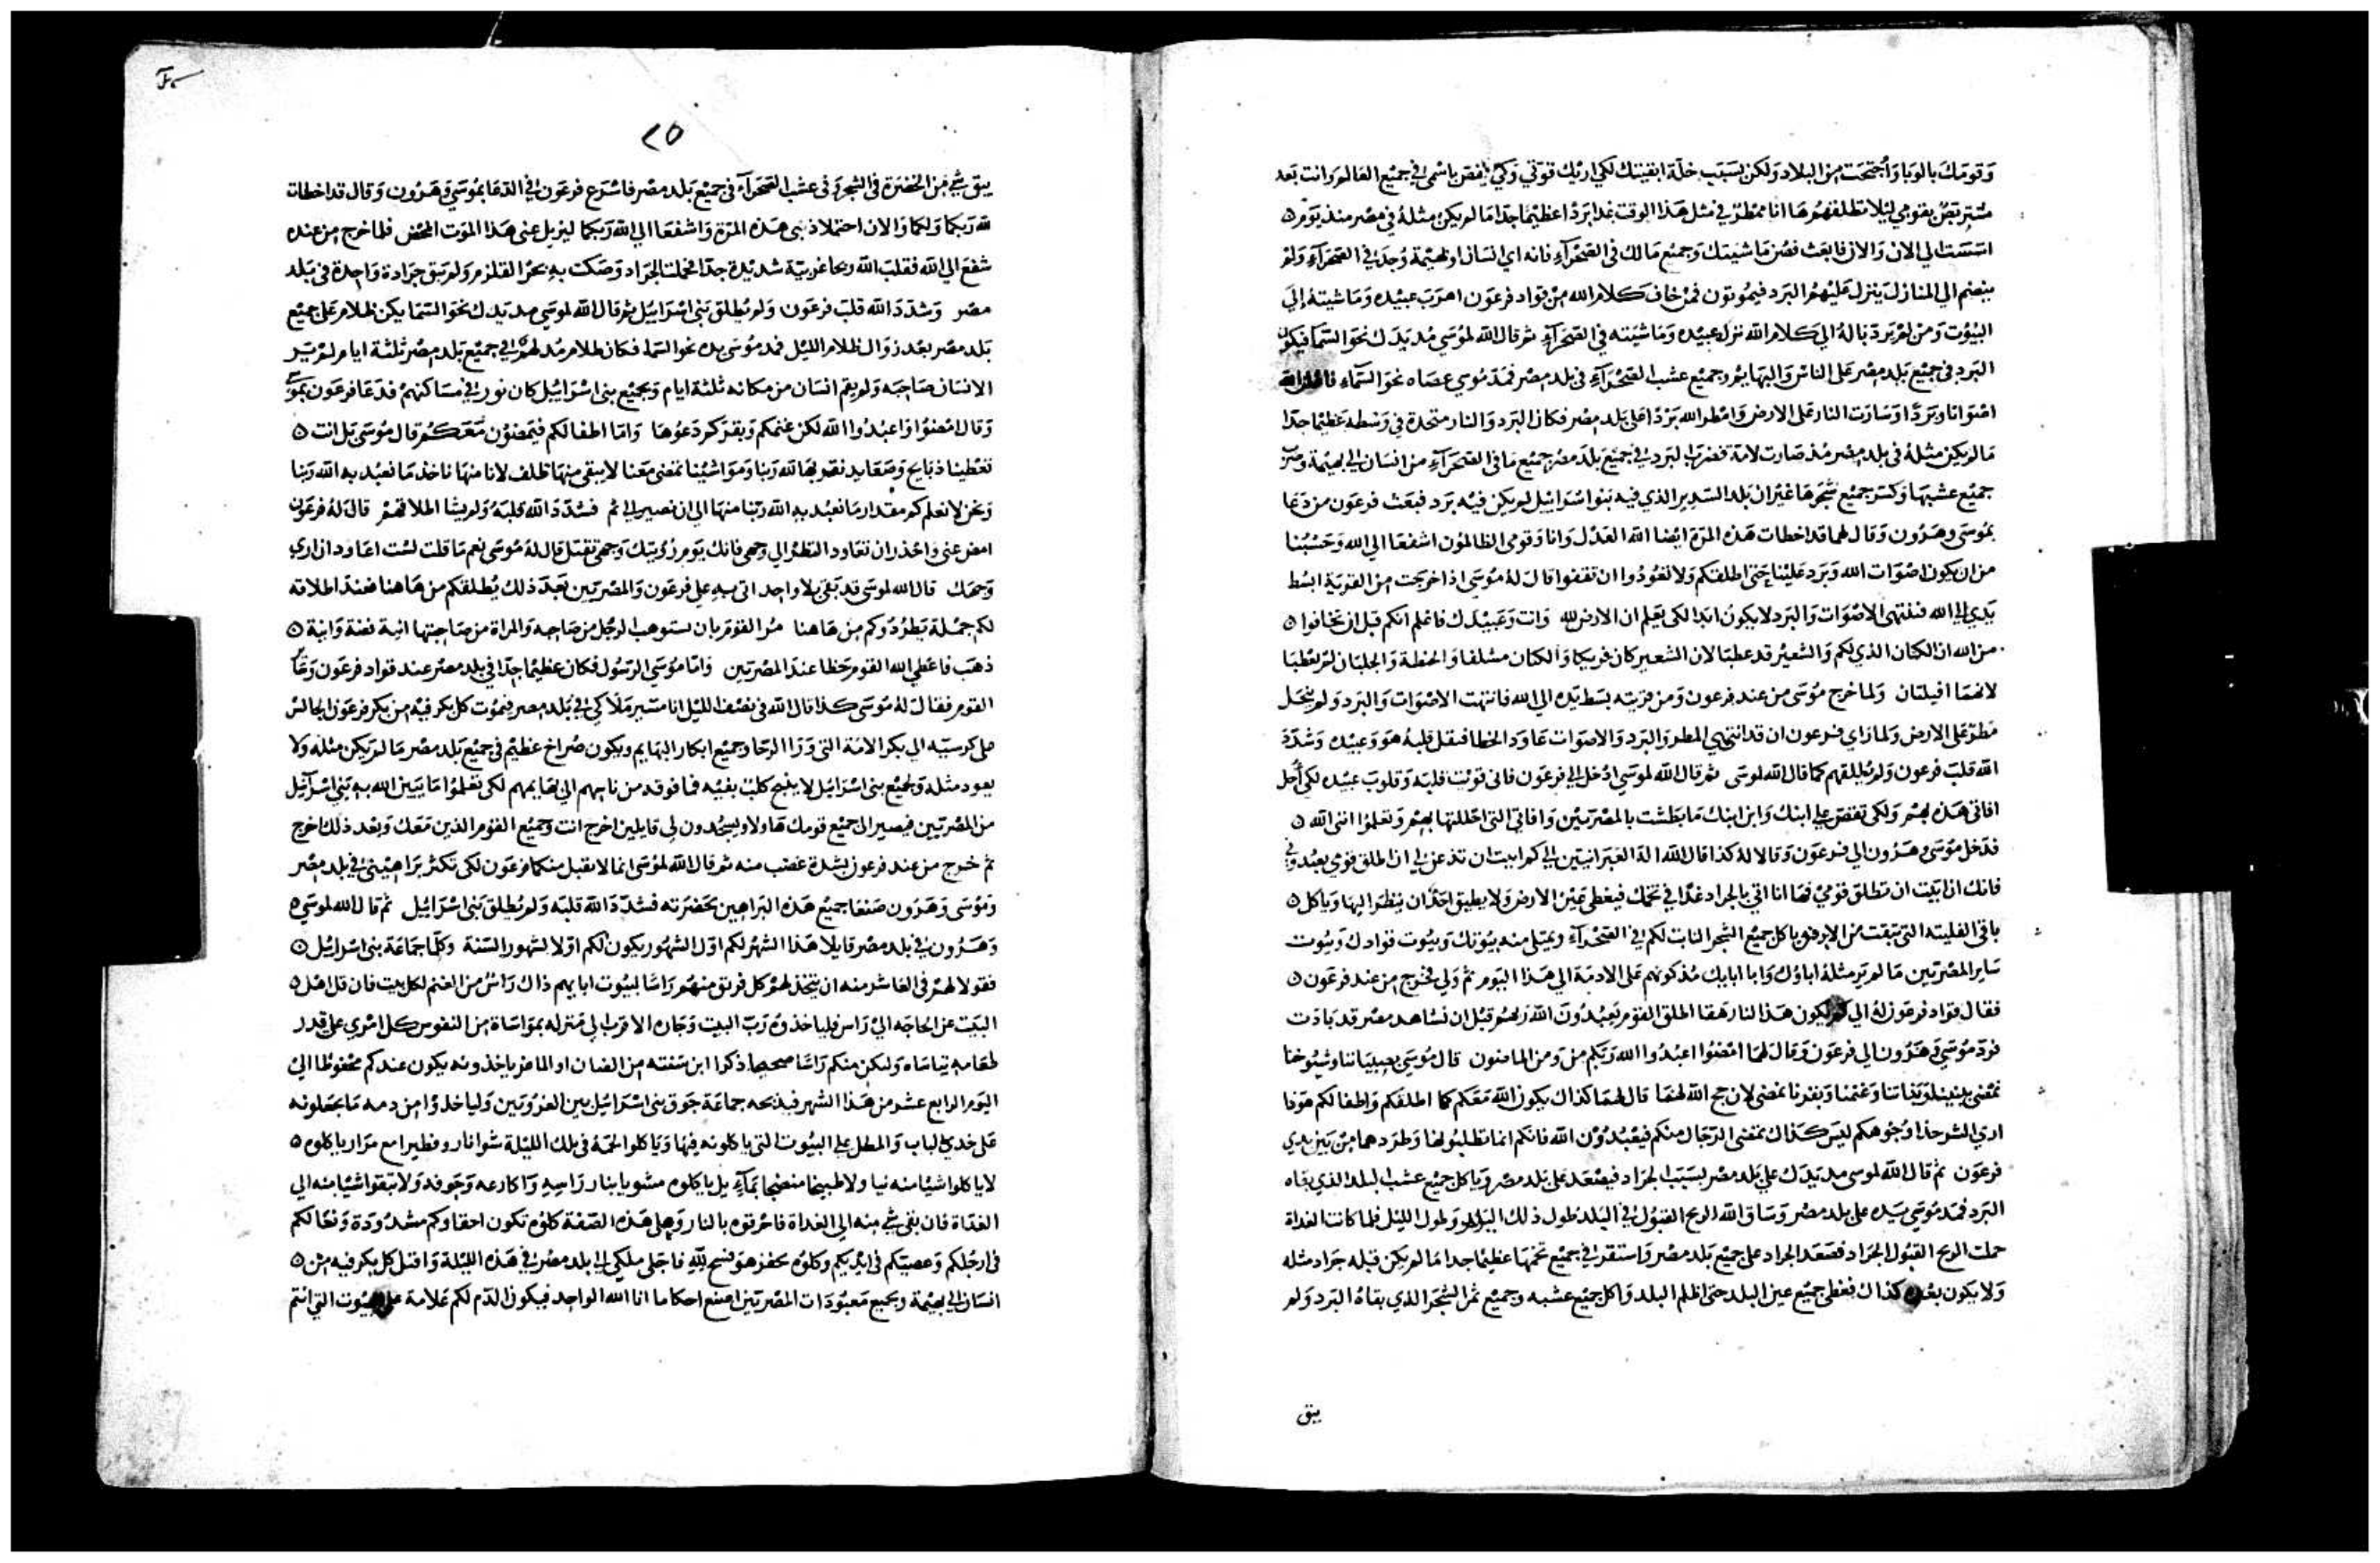 وَقومَك بالوَبا وَاُجتحَت من البلاد وَلكن بسَبَب خلّة ابقيتك لكي اريك قوّتي وَلكي يقصَ باسْمى في جميْع العَالم وَانت بَعد
مسْتربصٌ بقومي ليلا تطلقهُم هَا انا ممْطرٌ في مثل هَذا الوقت غدا برَدًا عظيْمًا جدّا مَا لم يكن مثلهُ في مصْر منذ يَوْم
اسّسَت الي الان وَالان فابعَث فضن مَاشيَتك وَجميْع مَالك في الصَحْرآء فانه اي انسَان او بَهيْمة وُجدَ في الصَحرآءِ وَلم
ينضم الي المنازل يَنزل عَليْهمُ البَرَد فيمُوتون فمنْ خافَ كلام الله منْ قواد فرعَون اهرَبَ عبيْده وَمَاشيته إلَى
البيُوت وَمن لمْ يَردّ بَالهُ الي كلام الله ترك عبيْده وَمَاشيَته في الصَحرآءِ ثم قال الله لموُسَي مُد يَدَك نحوَ السّمآ فيكون
البَرَد في جميْع بَلد مصْر عَلى الناسَ وَالبهَايم وجميْع عشب الصَحْرآءِ في بلد مصْر فمَدّ مُوسي عصَاه نحوَ السّمآءِ فاظهر الله
اصْوَاتا وَبَردًا وَسَارت النار عَلى الارض وَامْطر الله بَرَدًا عَلى بَلد مصْر فكان البَرد وَالنار متحدة في وَسطه عَظيمًا جدّا
مَا لم يكن مثلهُ في بلد مصْر مُذ صَارت لامة فضرَب البَرد في جميْع بَلد مصْر جميْع مَا في الصَحرآءِ من انسَان الي بهيْمة وضرَبَ
جميْع عشبهَا وَكسّر جميْع شجَرهَا غيْر ان بَلد السَدير الذي فيه بَنوا اسْرَائيْل لم يكن فيْه بَرَد فبعَث فرعَون من دَعَا
بمُوسَى وهَرُون وَقال لهما قد اخطات هَذه المرّة ايْضا الله العَدْل وَانا وَقومي الظالموُن اشفعَا الي الله وَحَسْبُنا
من ان يكون اصْوَات الله وَبَرد عَليْنا حَتى اطلقكم وَلا تعُوْدُوا ان تقفوا قال لهُ مُوسَى اذا خرَجت من القرية ابسُط
يَدي الي الله فتنتهي الاصْوَات وَالبَرد لا يكون ابدا لكي تعلم ان الارض لله وَانت وَعَبيْدَك فاعْلم انكم قبل ان تخافوا
من الله ان الكتان الذي لكم وَالشعيْر قد عطبَا لان الشعير كان فريكا وَالكتان مسْلفا وَالحنطة وَالجلبَان لم يَعْطبَا
لانهمَا افيلتان وَلما خرج مُوسَى من عند فرعون وَمن قريته بسَط يَده الي الله فانتهت الاصْوَات وَالبَرد وَلم ينحَل
مَطر عَلى الارض وَلما رَاي فرعون ان قد انتهي المطر وَالبَرد وَالاصوَات عَاوَد الخطا فثقل قلبهُ هوَ وَعبيْده وَشدّدَ
الله قلب فرعون وَلم يُطلقهم كما قال الله لموسَى ثم قال الله لموسَي ادْخل الي فرعَون فاني قوّيْت قلبه وَقلوبَ عبيْده لكي اُحل
افاتي هَذه بهمْ وَلكى تقصّ علي ابنك وَابن ابنك مَا بَطشت بالمصْريّيْن وَافاتي التي احْللتهَا بهمْ وَتعلمُوْا اني الله
فدَخل مُوسَي وهَرُون الي فرعَون وَقالا لهُ كذا قال الله الهَ العَبرانيّين الي كم ابيت ان تذعن لي ان اطلق قومي يعبُدوني
فانك ان ابَيْت ان تطلق قوميْ فهَا انا اتي بالجراد غدًا في تخمك فيغطي عَيْن الارض وَلا يطيق احَدٌ ان ينظرَ اليهَا وَياكل
باقي الفليتة التي تبَقت من البَرد وَياكل جميْع الشجَر النابت لكم في الصَحْرآءِ ويمتلي منه بيُوتك وَبيُوت قوادك وَبيُوت
سَاير المصْريّين مَا لم يَر مثلهُ ابَاؤك وَابا ابايك مُذ كونهم عَلى الادمَة الي هَذا اليَوم ثم وَلي فخرَج من عند فرعَون
فقال قواد فرعَون لهُ الي كم يكون هَذا لنا رهَقا اطلق القوْم يَعبُدُونَ الله رَبهُم قبْل ان نشاهد مصْر قد بَادَت
فردّ مُوسَيْ وَهَرُون الي فرعَون وَقال لهمَا امْضُوا اعبُدُوا الله رَبّكم من وَمن الماضون قال مُوسَي بصبيَاننا وشيُوخنا
نمْضي ببنيننا وَبناتنا وَغنمْنا وَبقرنا نمضي لان حج الله لنا قال لهُمَا كذاك يكون الله مَعَكم كما اطلقكم وَاطفالكم هوَذا
اري الشر حذا وُجُوهكم ليسَ كذاك يَمضي الرّجَال منكم فيعْبُدُوْن الله فانكم انما تطلبُونها وَطرَدهمَا مِنْ بَين يدي
فرعَون ثم قال الله لموسى مد يَدَك علي بَلد مصْر بسَبَب الجرَاد فيصْعَد عَلى بَلد مصْر وَياكل جميْع عشب البلد الذي بقاه
البَرد فمَد مُوسَي يَده على بلد مصْر وَسَاق الله الريح القبُول في البَلد طول ذلك اليَوم وَطول الليْل فلما كانت الغداة
حملت الريح القبُول الجرَاد فصَعَد الجراد على جميْع بَلد مصْر وَاستقر في جميْع تخمهَا عظيْمًا جدا مَا لم يكن قبله جَراد مثله
وَلا يكون بعْده كذاك فغطي جميْع عين البلد حتى اظلم البلد وَاكل جميْع عشبه وجميْع ثمر الشجَر الذي بقاهُ البَرد وَلم
يبق
٢٥
يبق شيْ من الخضرَة في الشجر وَفي عشب الصَحرآء في جميْع بَلد مصْر فاسْرَع فرعَون في الدّعَا بموُسَي وَهَرُون وَقال قد اخطات
لله رَبكما وَلكما وَالان احتملا ذنبي هَذه المرّة وَاشفعَا الي الله رَبكما ليزيل عني هَذا الموَت المحْض فلما خرج من عنده
شفعَ الي الله فقلبَ الله ريحا غربيّة شديْدة جدّا فحملت الجَراد وَصَكت به بحرَ القلزم وَلم يَبق جرَادة وَاحِدة في بَلد
مصْر وَشدّدَ الله قلبَ فرعَون وَلم يُطلق بَني اسْرَاييْل ثم قال الله لموسَي مد يَدك نحوَ السّمَا يكن ظلام عَلى جميْع
بَلد مصْر بعْد زوَال ظلام الليْل فمد مُوسَى يده نحو السمَآء فكان ظلام مُدْلهمّ في جميْع بَلد مصْر ثلثة ايام لم يَر
الانسَان صَاحِبَه وَلم يقم انسَان من مكانه ثلثة ايام وَلجميْع بني اسْرَاييْل كان نور في مسَاكنهمْ فدَعَا فرعَون بموسي
وَقال امْضُوْا وَاعبُدُوا الله لكن غنمكم وَبقرَكم دَعُوهَا وَامّا اطفالكم فيَمضوُن مَعَكُم قال موُسَى بَل انت
تعْطينا ذبَايح وَصَعَايد نقربهَا لله رَبنا وَمَوَاشيْنا تمضي مَعَنا لا يبقى منهَا ظلف لانا منهَا ناخذ مَا نعبُد به الله رَبنا
وَنحن لا نعلم كم مقدار مَا نعبُد به الله رَبّنا منهَا الي ان نصير الي ثم فشدّدَ الله قلبَهُ وَلم يشا اطلاقهمْ قال لهُ فرعَون
امض عني وَاحْذر ان تعَاود النظر الي وجهي فانك يَوم رُؤيَتك وَجهي تقتل قال لهُ مُوسَى نعم مَا قلت لسْت اعَاود ان اري
وَجهَك قال الله لموسَى قد بَقيَ بلاء وَاحد اتي به علي فرعَون وَالمصْريّين بَعدَ ذلك يُطلقكم من هَاهنا فعندَ اطلاقه
لكم جمْلة يَطرُدُوكم من هَاهنا مُر القوْم بان يستوهبَ الرجُل من صَاحبه وَالمراة من صَاحِبتهَا انية فضة وَانيَة
ذهَب فاعطي الله القوم حَظا عندَ المصْريّين وَامّا مُوسَي الرسُول فكان عظيْمًا جدّا في بلد مصْر عند قواد فرعَون وَعندَ
القوم فقال لهُ مُوسَى كذا قال الله في نصْف الليْل انا مسيّر مَلاَكي في بَلد مصر فيمُوت كل بكر فيْه من بكر فرعَون الجالس
على كرسيّه الي بكر الامَة التي وَرَا الرّحَا وجميْع ابكار البهَايم ويكون صُرَاخ عَظيْم في جميْع بَلد مصْر مَا لم يَكن مثله وَلا
يعود مثله وَلجميْع بني اسْرائيْل لا ينبح كلبٌ بفيْه فما فوقه من ناسهم الي بهَايمهم لكى تعْلموُا مَا يميز الله به بَني اسْرآئيل
من المصْريّين فيصير الي جميْع قومك هَاولاء ويسجُدون لي قايلين اخرج انت وَجميْع القوم الذين مَعَك وَبعْد ذلك اخرج
ثم خرج من عند فرعون بشدة غضب منه ثم قال الله لموُسَى انما لا يقبل منكما فرعَون لكي تكثر بَراهيْني في بلد مصْر
وَمُوسَى وَهَرُون صَنعَا جميْع هَذه البَراهين بحَضرته فشدّدَ الله قلبه وَلم يُطلق بَني اسْرَائيْل ثم قال الله لموسَي
وَهَرُون في بلد مصْر قايلا هَذا الشهْر لكم اول الشهُور يكون لكم اوّلا لشهور السّنة وَكلّما جمَاعَة بني اسْراييْل
فقولا لهمْ في العَاشر منه ان يتخذ لهمْ كل فريق منهُم رَاسًا لبيُوت ابايهم ذاك رَاسٌ من الغنم لكل بَيت فان قل اهْل
البيَت عن الحاجَه الي رَاس فلياخذهُ رَبّ البيت وَجَاره الاقرَب الي مَنزله بموَاسَاة من النفوس كل امْري على قدر
طعَامه يَتَاسَاه وَليكن منكم رَاسًا صحيحا ذكرا ابن سَنته من الضان او الماعز ياخذونه يكون عندكم محفوظا الي
اليَوم الرابع عشر من هَذا الشهر فيذبحه جماعَة جوَق بني اسْرَائيْل بين الغرُوبَين وَلياخذوْا من دمه مَا يجعَلونه
عَلى خدي الباب وَالمطل علي البيُوت التي ياكلونه فيهَا وَياكلوا لحمَهُ في تلك الليْلة شوَا نار وفطيرا مع مرَار ياكلوه
لا ياكلوا شيْا منه نيا ولا طبيخا منضجا بمآءٍ بل ياكلوه مشويا بنار رَاسِه وَاكارعه وَجَوفه وَلا تبقوا شيْا منه الي
الغدَاة فان بقي شيْ منه الي الغداة فاحْرقوه بالنار وَعلي هَذه الصّفة كلوُه تكون احقاوكم مشدُوْدَة وَنعَالكم
في ارجُلكم وَعصيّكم في ايْديكم وكلوُه بحفز هوَ فسح لله فاجَلى ملَكي في بلد مصْر في هَذه الليْلة وَاقتل كل بكر فيه من
انسَان الي بهيْمة وبجميع مَعبُوْدَات المصْريّين اصنع احكاما انا الله الواحِد فيكون الدّم لكم عَلامة على البيُوت التي انتم